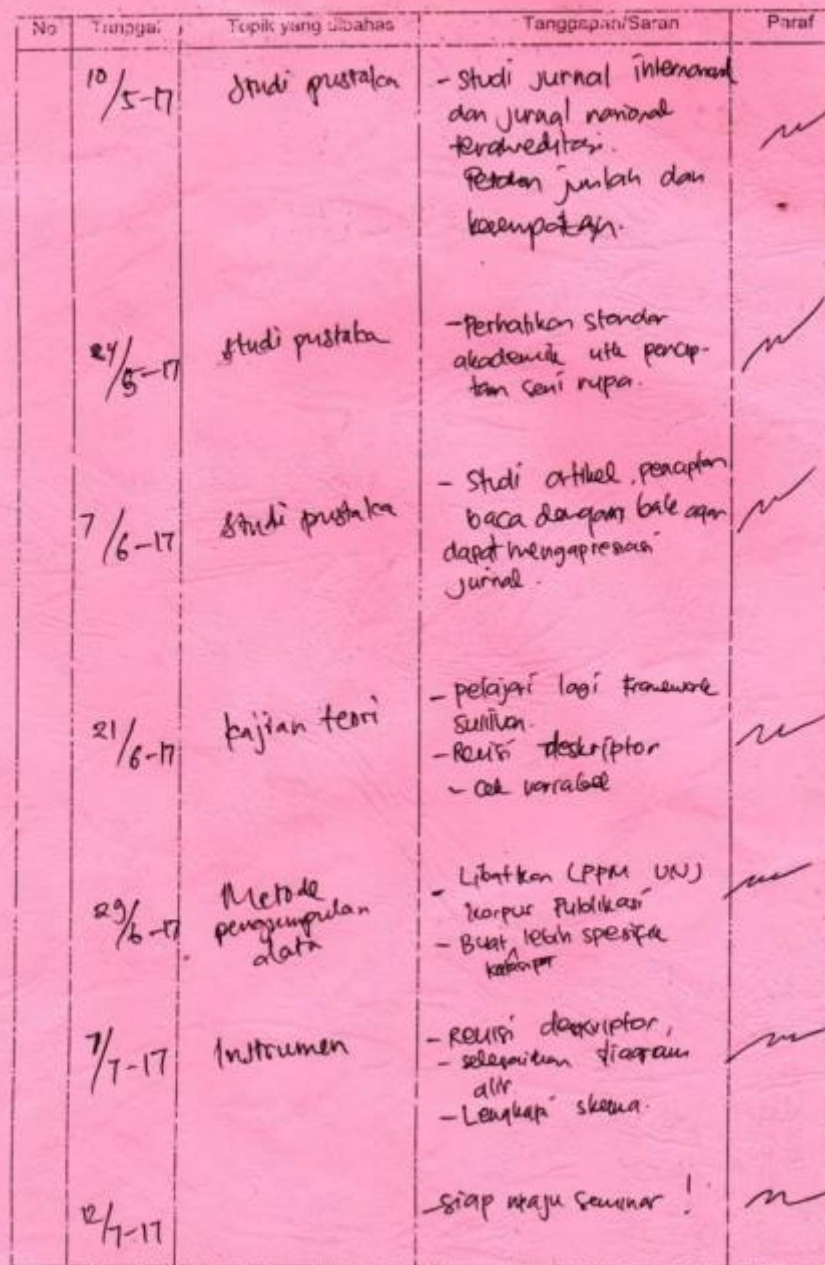 No Tanggal Topik yang dibahas Tanggapan/Saran Paraf
10/5-17 Studi pustaka - Studi jurnal internasional
dan jurnal nasional
terakreditasi.
jumlah dan
24/5-17 studi pustaka - Perhatikan standar
akademik utk pencip-
taan seni rupa.
7/6-17 Studi pustaka - Studi artikel penciptaan
baca dengan baik agar
dapat mengapresiasi
jurnal.
21/6-17 kajian teori - pelajari lagi Framework
- Revisi deskriptor
- Cek variabel
29/6-17 Metode
pengumpulan
data
- Libatkan LPPM
korpus Publikasi
- Buat lebih spesifik
7/7-17 Instrumen - Revisi deskriptor,
- selesaikan diagram
alir
- Lengkapi skema.
12/7-17 - siap maju seminar !